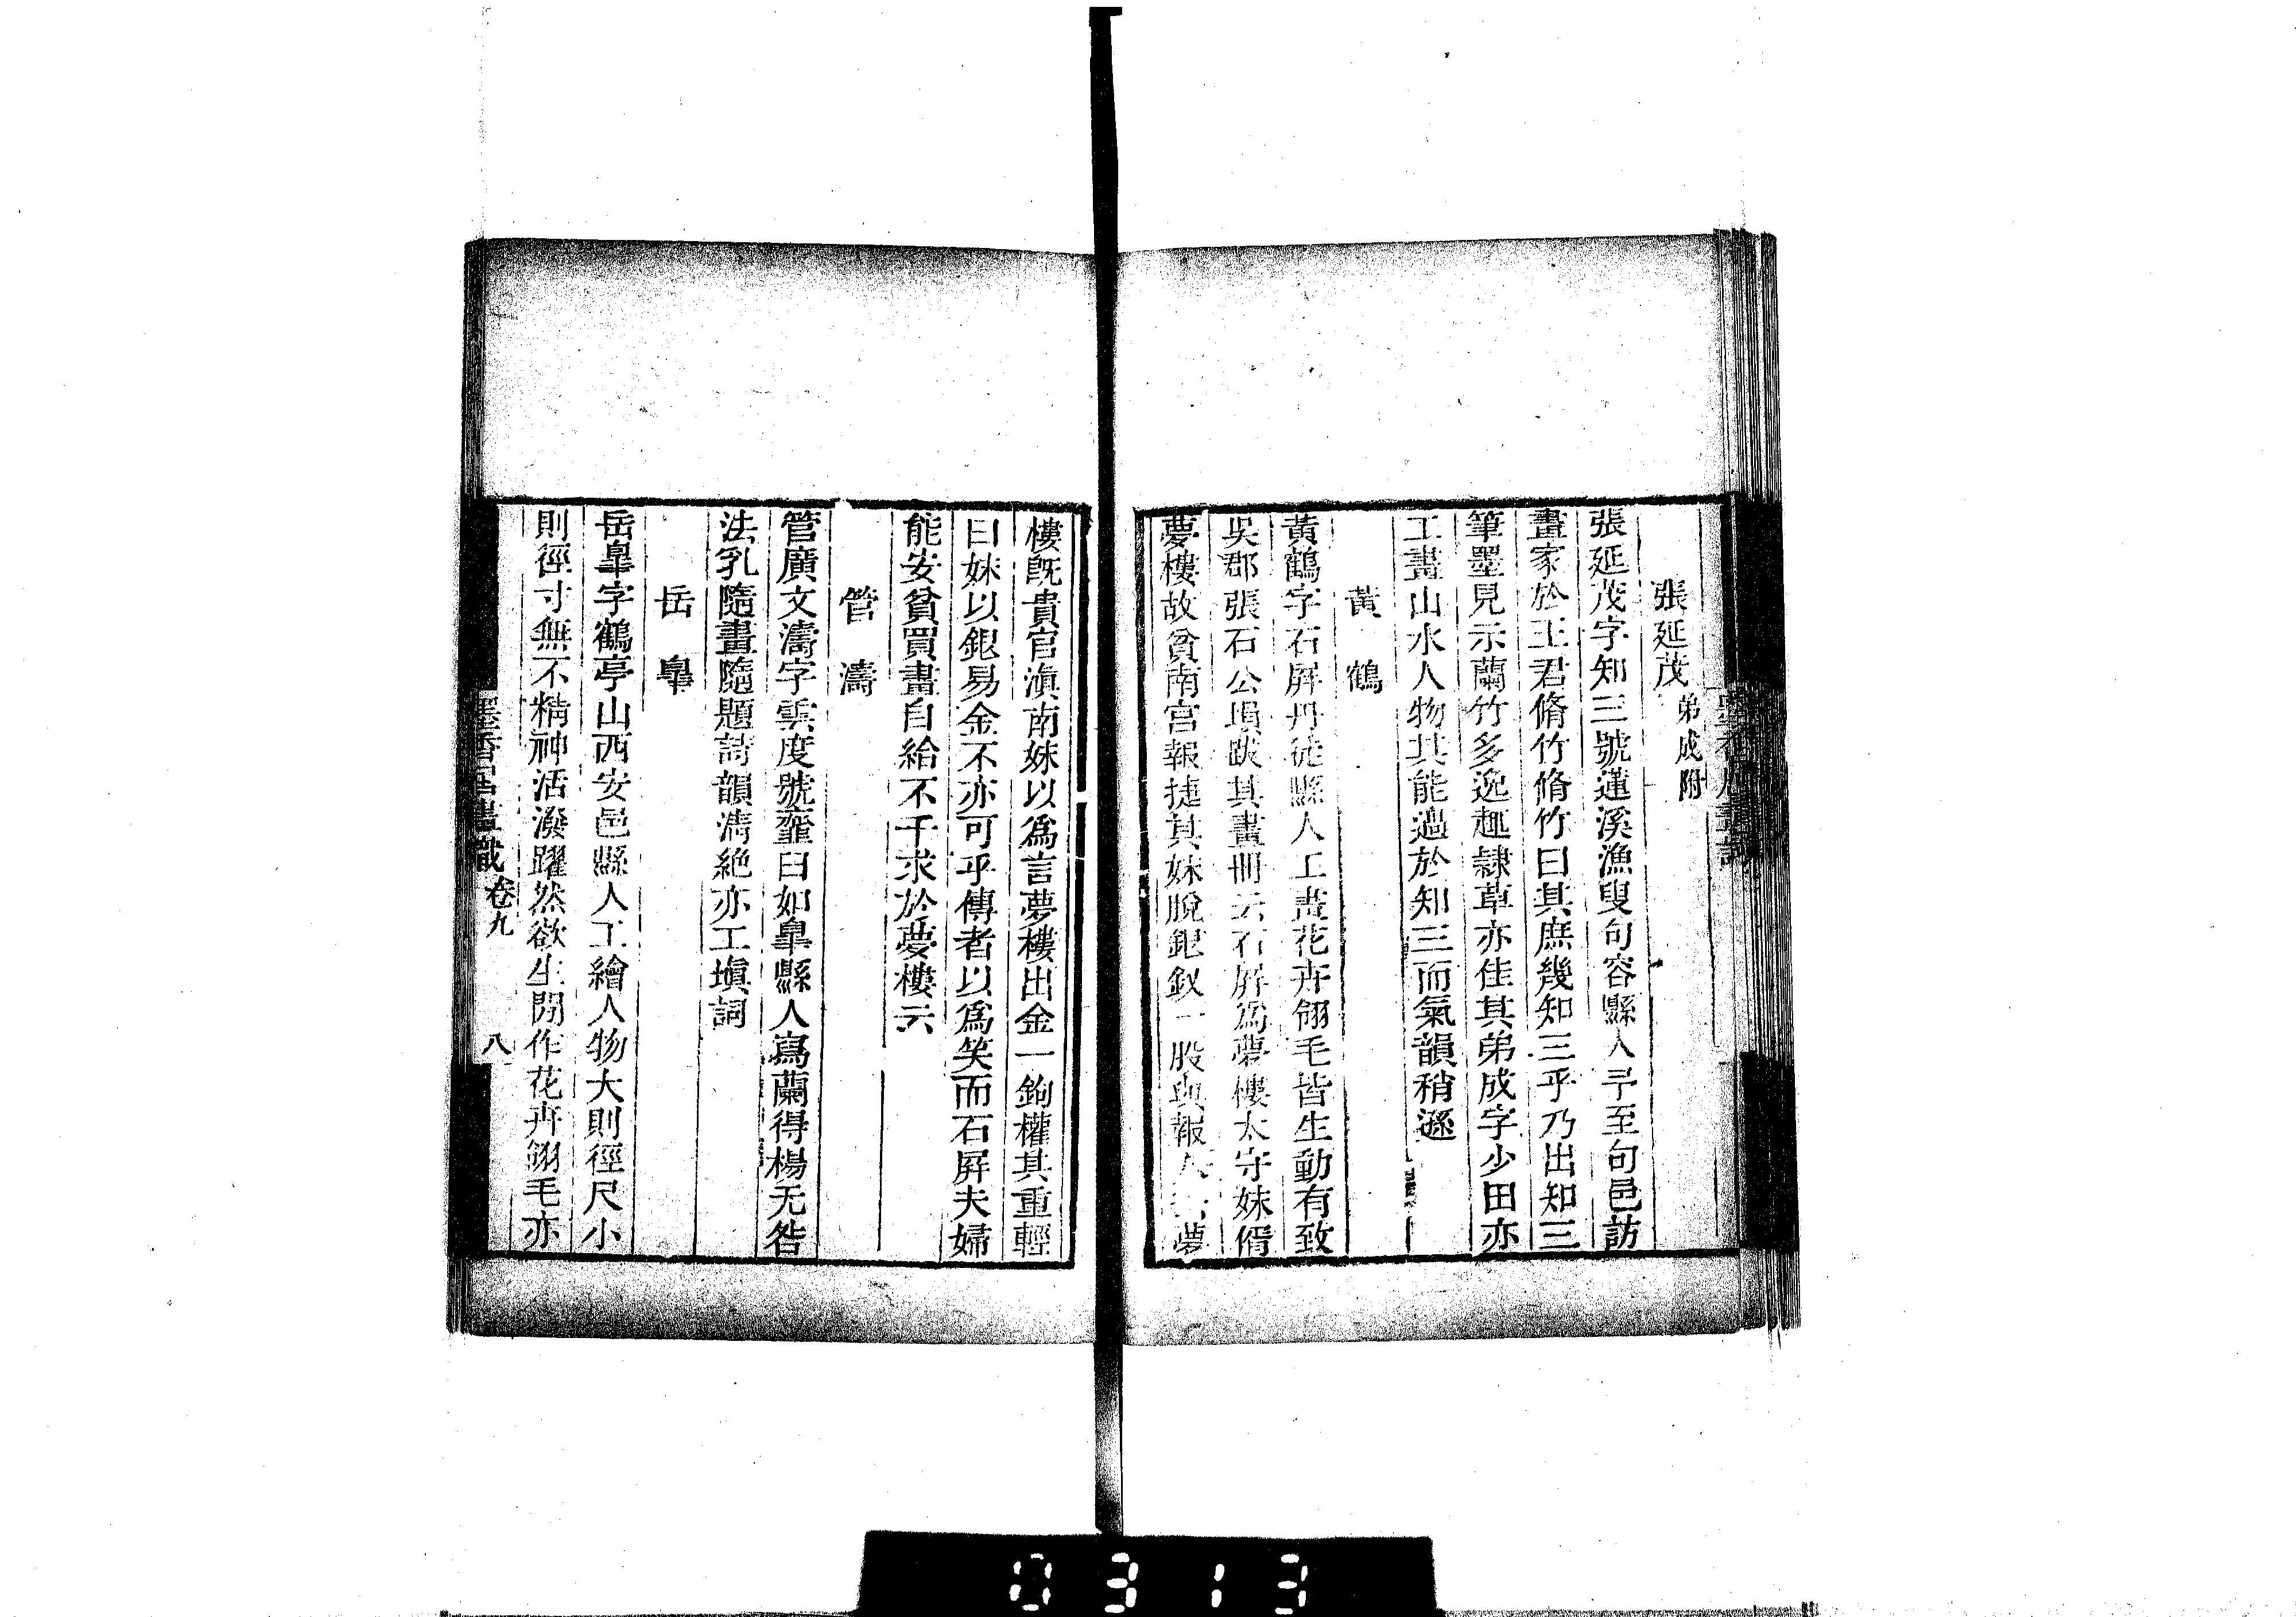 張延茂弟成附
張延茂字知三號蓮溪漁叟句容縣人予至句邑訪
畫家於王君脩竹脩竹曰其庶幾知三乎乃出知三
筆墨見示蘭竹多逸趣隷草亦佳其弟成字少田亦
工畫山水人物其能過於知三而氣韻稍遜
黃鶴
黃鶴字石屏丹徒縣人工畫花卉翎毛皆生動有致
吳郡張石公塤跋其畫冊云石屏爲夢樓太守妹偦
夢樓故貧南宮報捷其妹脫銀釵一股與報人夢
樓旣貴官滇南妹以爲言夢樓出金一鉤權其重輕
曰妹以銀易金不亦可乎傳者以爲笑而石屏夫婦
能安貧買畫自給不干求於夢樓云
管濤
管廣文濤字雲度號曰如臯縣人寫蘭得楊无咎
法乳隨畫隨題詩韻淸絶亦工塡詞
岳臯
岳臯字鶴亭山西安邑縣人工繪人物大則徑尺小
則徑寸無不精神活潑躍然欲生閒作花卉翎毛亦
墨香居畫識
卷九
八
0313